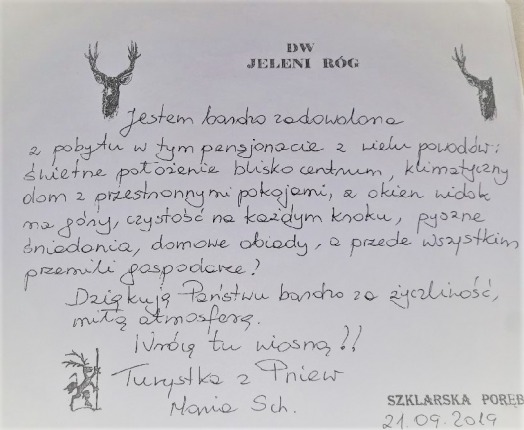 DW
JELENI RÓG
Jestem bardzo zadowolona
z pobytu w tym pensjonacie z wielu powodów:
świetne położenie blisko centrum, klimatyczny
dom z przestronnymi pokojami, z okien widok
na góry, czystość na każdym kroku, pyszne
śniadania, domowe obiady, a przede wszystkim
przemili gospodarze!
Dziękuję Państwu bardzo za życzliwość,
miłą atmosferę.
Wrócę tu wiosną!!
Turystka z Pniew
Maria Sch.
SZKLARSKA PORĘB
21.09.2019